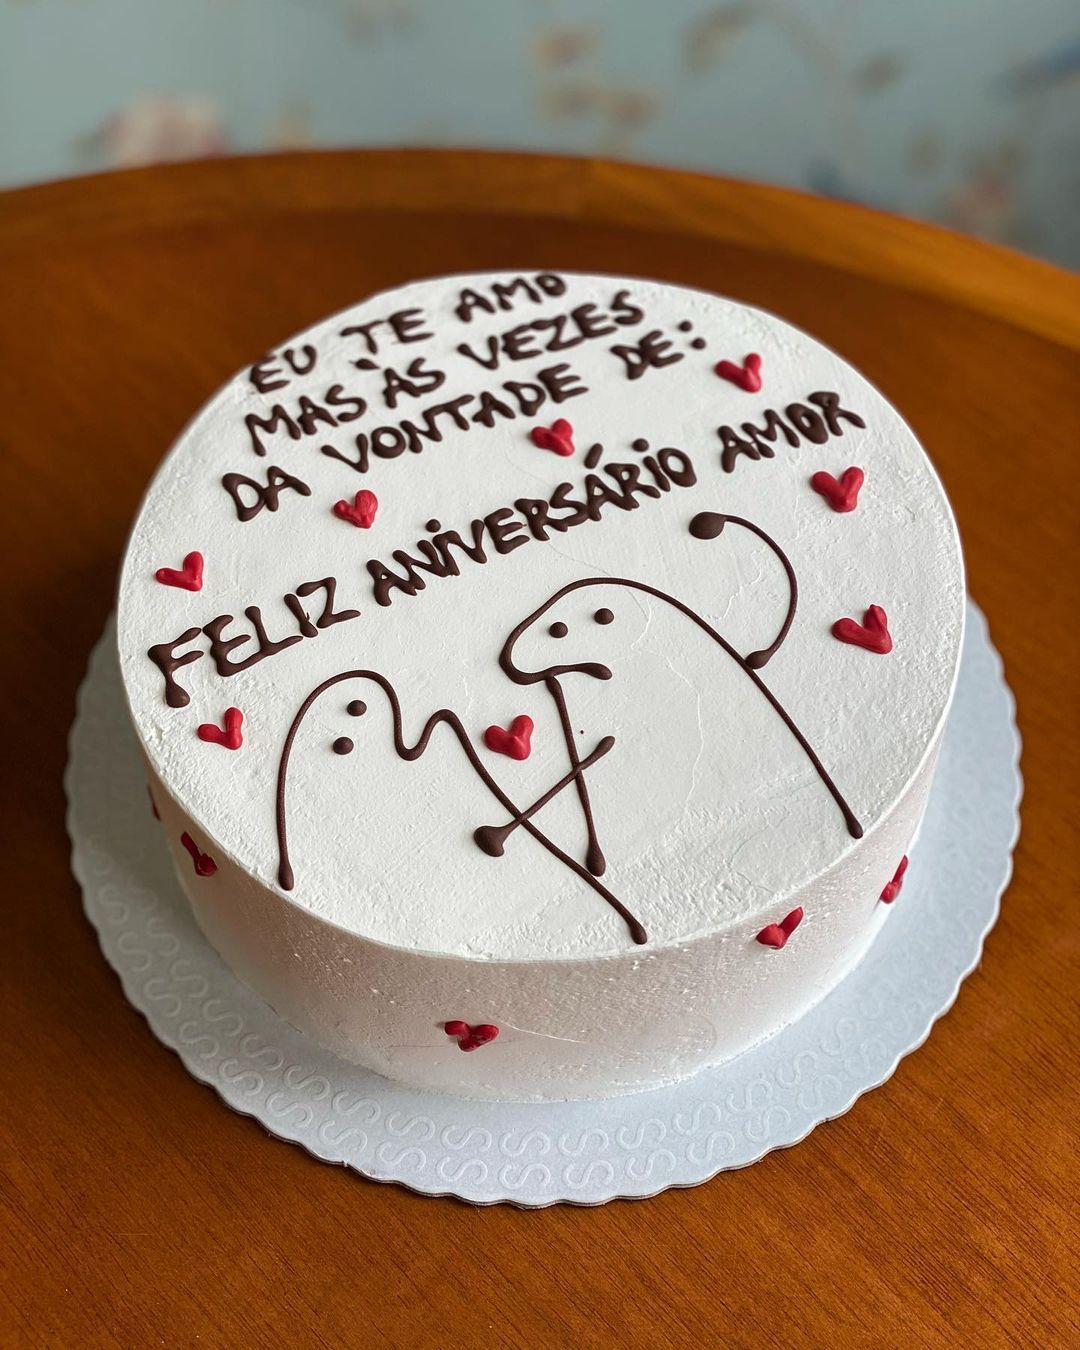 EU TE AMO
MAS ÀS VEZES
DA VONTADE DE:
FELIZ ANIVERSÁRIO AMOR